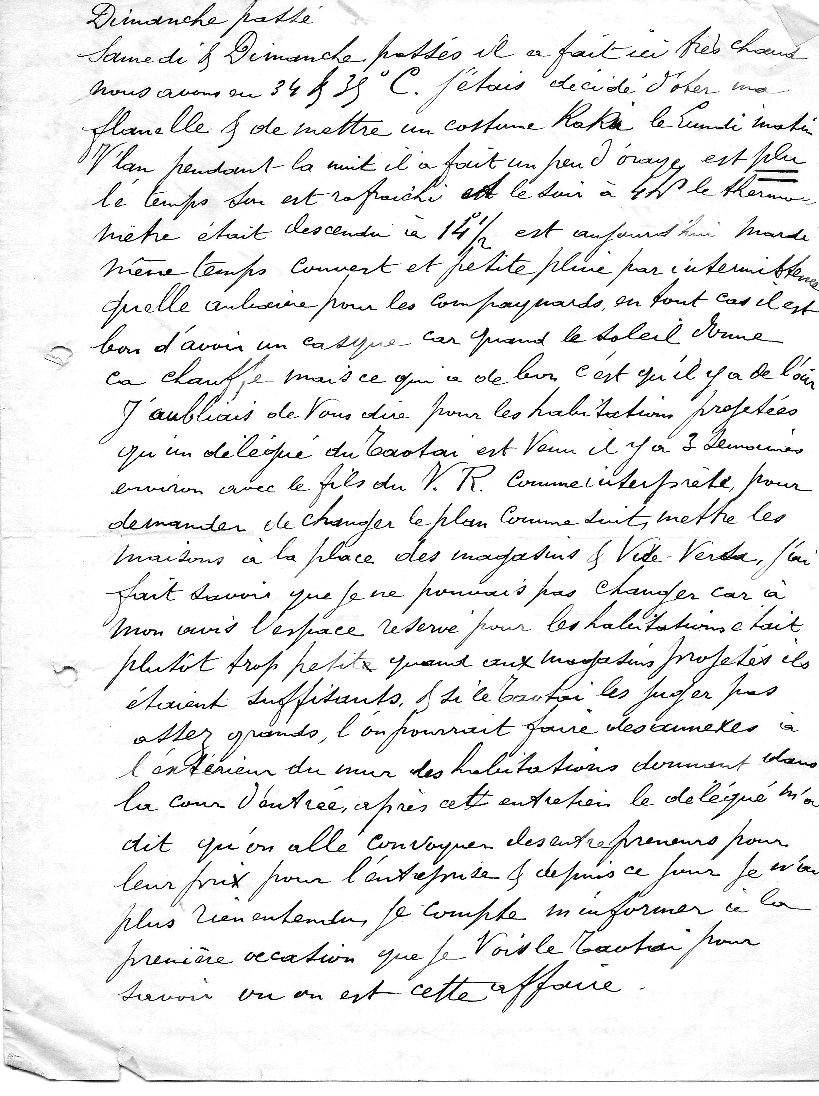 Dimanche passé
Samedi & Dimanche passés il a fait ici très chaud
nous avons eu 34 & 35° C. J'étais décidé d'ôter ma
flanelle & de mettre un costume Kaki le Lundi matin
V'lan pendant la nuit il a fait un peu d'orage, est plu
lé temps son est rafraichi et le soir à 4h le thermo-
mètre était descendu à 14°1/2 est aujourd'hui Mardi
même temps couvert et petite pluie par intermittence
quelle aubaine pour les compagnards, en tout cas il est
bon d'avoir un casque car quand le soleil donne
ca chauffe mais ce qui a de bon c'ést qu'il y a de l'air
J'aubliais de Vous dire pour les habitations projetées
qu'un délégué du Taotai est Venu il y a 3 Semaines
environ avec le fils du V. R. comme interprète, pour
demander de changer le plan comme suit, mettre les
maisons à la place des magasins & Vise-Versa, j'ai
fait savoir que je ne pouvais pas changer car à
mon avis l'espace reservé pour les habitations était
plutôt trop petite quand aux magasins projetés ils
étaient suffisants, & si le Taotai les juger pas
assez grands, l'ón pourrait faire des annexes à
l'éxtérieur du mur des habitations donnant dans
la cour d'éntrée, après cett entretien le délégué m'a
dit qu'on alle convoquer des entrepreneurs pour
leur prix pour l'éntreprise & depuis ce jour je n'ai
plus rien entendu, je compte m'informer à la
première occation que je Vois le Taotai pour
savoir ou on est cette affaire.